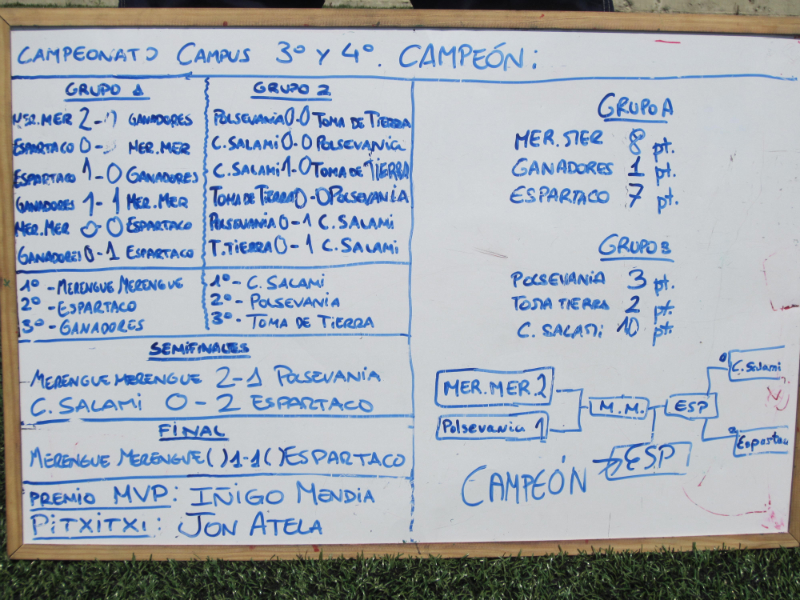 CAMPEONATO CAMPUS 3º Y 4º. CAMPEÓN:
GRUPO 1
MER.MER 2- GANADORES
ESPARTACO 0- MER.MER
ESPARTACO 1-0 GANADORES
GANADORES 1-1 MER.MER
MER.MER 0-0 ESPARTACO
GANADORES 0-1 ESPARTACO
1º - MERENGUE MERENGUE
2º - ESPARTACO
3º - GANADORES
GRUPO 2
POLSEVANIA 0-0 TOMA DE TIERRA
C.SALAMI 0-0 POLSEVANIA
C.SALAMI 1-0 TOMA DE TIERRA
TOMA DE TIERRA 0-0 POLSEVANIA
POLSEVANIA 0-1 C.SALAMI
T.TIERRA 0-1 C.SALAMI
1º - C.SALAMI
2º - POLSEVANIA
3º - TOMA DE TIERRA
SEMIFINALES
MERENGUE MERENGUE 2-1 POLSEVANIA
C.SALAMI 0-2 ESPARTACO
FINAL
MERENGUE MERENGUE ( ) 1-1 ( ) ESPARTACO
PREMIO MVP: IÑIGO MENDIA
PITXITXI: JON ATELA
GRUPO A
MER.MER 8 pt.
GANADORES 1 pt.
ESPARTACO 7 pt.
GRUPO B
POLSEVANIA 3 pt.
TOMA TIERRA 2 pt.
C.SALAMI 10 pt.
MER.MER.2
Polsevania 1
M.M.
ESP
0 C.Salami
2 Espartaco
CAMPEÓN → ESP